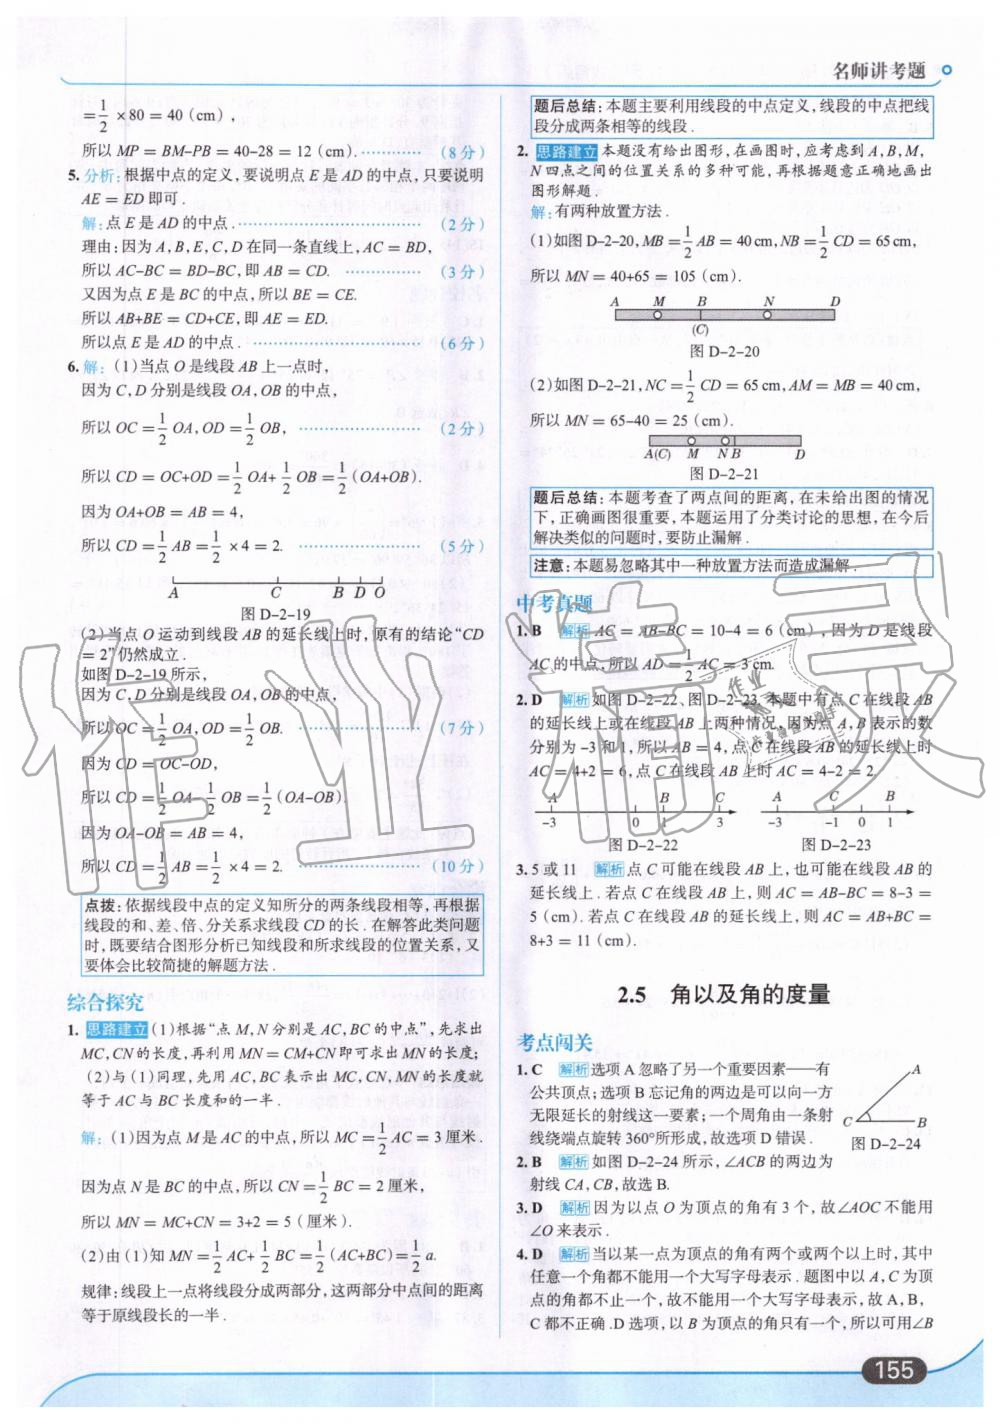 名师讲考题
=1/2×80=40(cm),
所以MP=BM-PB=40-28=12(cm).…………(8分)
5.分析:根据中点的定义,要说明点E是AD的中点,只要说明
AE=ED即可.
解:点E是AD的中点.…………(2分)
理由:因为A,B,E,C,D在同一条直线上,AC=BD,
所以AC-BC=BD-BC,即AB=CD. …………(3分)
又因为点E是BC的中点,所以BE=CE.
所以AB+BE=CD+CE,即AE=ED.
所以点E是AD的中点.…………(6分)
6.解:(1)当点O是线段AB上一点时,
因为C,D分别是线段OA,OB的中点,
所以OC=1/2OA,OD=1/2OB, …………(2分)
所以CD=OC+OD=1/2OA+1/2OB=1/2(OA+OB).
因为OA+OB=AB=4,
所以CD=1/2AB=1/2×4=2. …………(5分)
A C B D O
图D-2-19
(2)当点O运动到线段AB的延长线上时,原有的结论“CD
=2”仍然成立.
如图D-2-19所示,
因为C,D分别是线段OA,OB的中点,
所以OC=1/2OA,OD=1/2OB. …………(7分)
因为CD=OC-OD,
所以CD=1/2OA-1/2OB=1/2(OA-OB).
因为OA-OB=AB=4,
所以CD=1/2AB=1/2×4=2. …………(10分)
点拨:依据线段中点的定义知所分的两条线段相等,再根据
线段的和、差、倍、分关系求线段CD的长.在解答此类问题
时,既要结合图形分析已知线段和所求线段的位置关系,又
要体会比较简捷的解题方法.
综合探究
1.思路建立(1)根据“点M,N分别是AC,BC的中点”,先求出
MC,CN的长度,再利用MN=CM+CN即可求出MN的长度;
(2)与(1)同理,先用AC,BC表示出MC,CN,MN的长度就
等于AC与BC长度和的一半.
解:(1)因为点M是AC的中点,所以MC=1/2AC=3厘米.
因为点N是BC的中点,所以CN=1/2BC=2厘米,
所以MN=MC+CN=3+2=5(厘米).
(2)由(1)知MN=1/2AC+1/2BC=1/2(AC+BC)=1/2a.
规律:线段上一点将线段分成两部分,这两部分中点间的距离
等于原线段长的一半.
题后总结:本题主要利用线段的中点定义,线段的中点把线
段分成两条相等的线段.
2.思路建立本题没有给出图形,在画图时,应考虑到A,B,M,
N四点之间的位置关系的多种可能,再根据题意正确地画出
图形解题.
解:有两种放置方法.
(1)如图D-2-20,MB=1/2AB=40cm,NB=1/2CD=65cm,
所以MN=40+65=105(cm).
A M B N D
(C)
图D-2-20
(2)如图D-2-21,NC=1/2CD=65cm,AM=MB=40cm,
所以MN=65-40=25(cm).
A(C) M N B D
图D-2-21
题后总结:本题考查了两点间的距离,在未给出图的情况
下,正确画图很重要,本题运用了分类讨论的思想,在今后
解决类似的问题时,要防止漏解.
注意:本题易忽略其中一种放置方法而造成漏解.
中考真题
1.B 解析AC=AB-BC=10-4=6(cm),因为D是线段
AC的中点,所以AD=1/2AC=3cm.
2.D 解析如图D-2-22、图D-2-23.本题中有点C在线段AB
的延长线上或在线段AB上两种情况,因为点A,B表示的数
分别为-3和1,所以AB=4,点C在线段AB的延长线上时
AC=4+2=6,点C在线段AB上时AC=4-2=2.
A B C A C B
-3 0 1 3 -3 -1 0 1
图D-2-22 图D-2-23
3.5或11 解析点C可能在线段AB上,也可能在线段AB的
延长线上.若点C在线段AB上,则AC=AB-BC=8-3=
5(cm).若点C在线段AB的延长线上,则AC=AB+BC=
8+3=11(cm).
2.5 角以及角的度量
考点闯关
1.C 解析选项A忽略了另一个重要因素——有
公共顶点;选项B忘记角的两边是可以向一方
无限延长的射线这一要素;一个周角由一条射
线绕端点旋转360°所形成,故选项D错误.
A
C B
图D-2-24
2.B 解析如图D-2-24所示,∠ACB的两边为
射线CA,CB,故选B.
3.D 解析因为以点O为顶点的角有3个,故∠AOC不能用
∠O来表示.
4.D 解析当以某一点为顶点的角有两个或两个以上时,其中
任意一个角都不能用一个大写字母表示.题图中以A,C为顶
点的角都不止一个,故不能用一个大写字母表示,故A,B,
C都不正确.D选项,以B为顶点的角只有一个,所以可用∠B
155
作业精灵